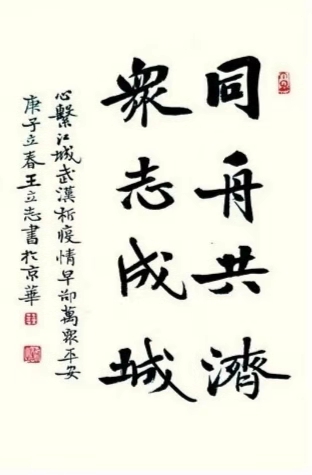 同舟共濟
衆志成城
心繫江城武漢祈疫情早卻萬衆平安
庚子立春王立志書於京華